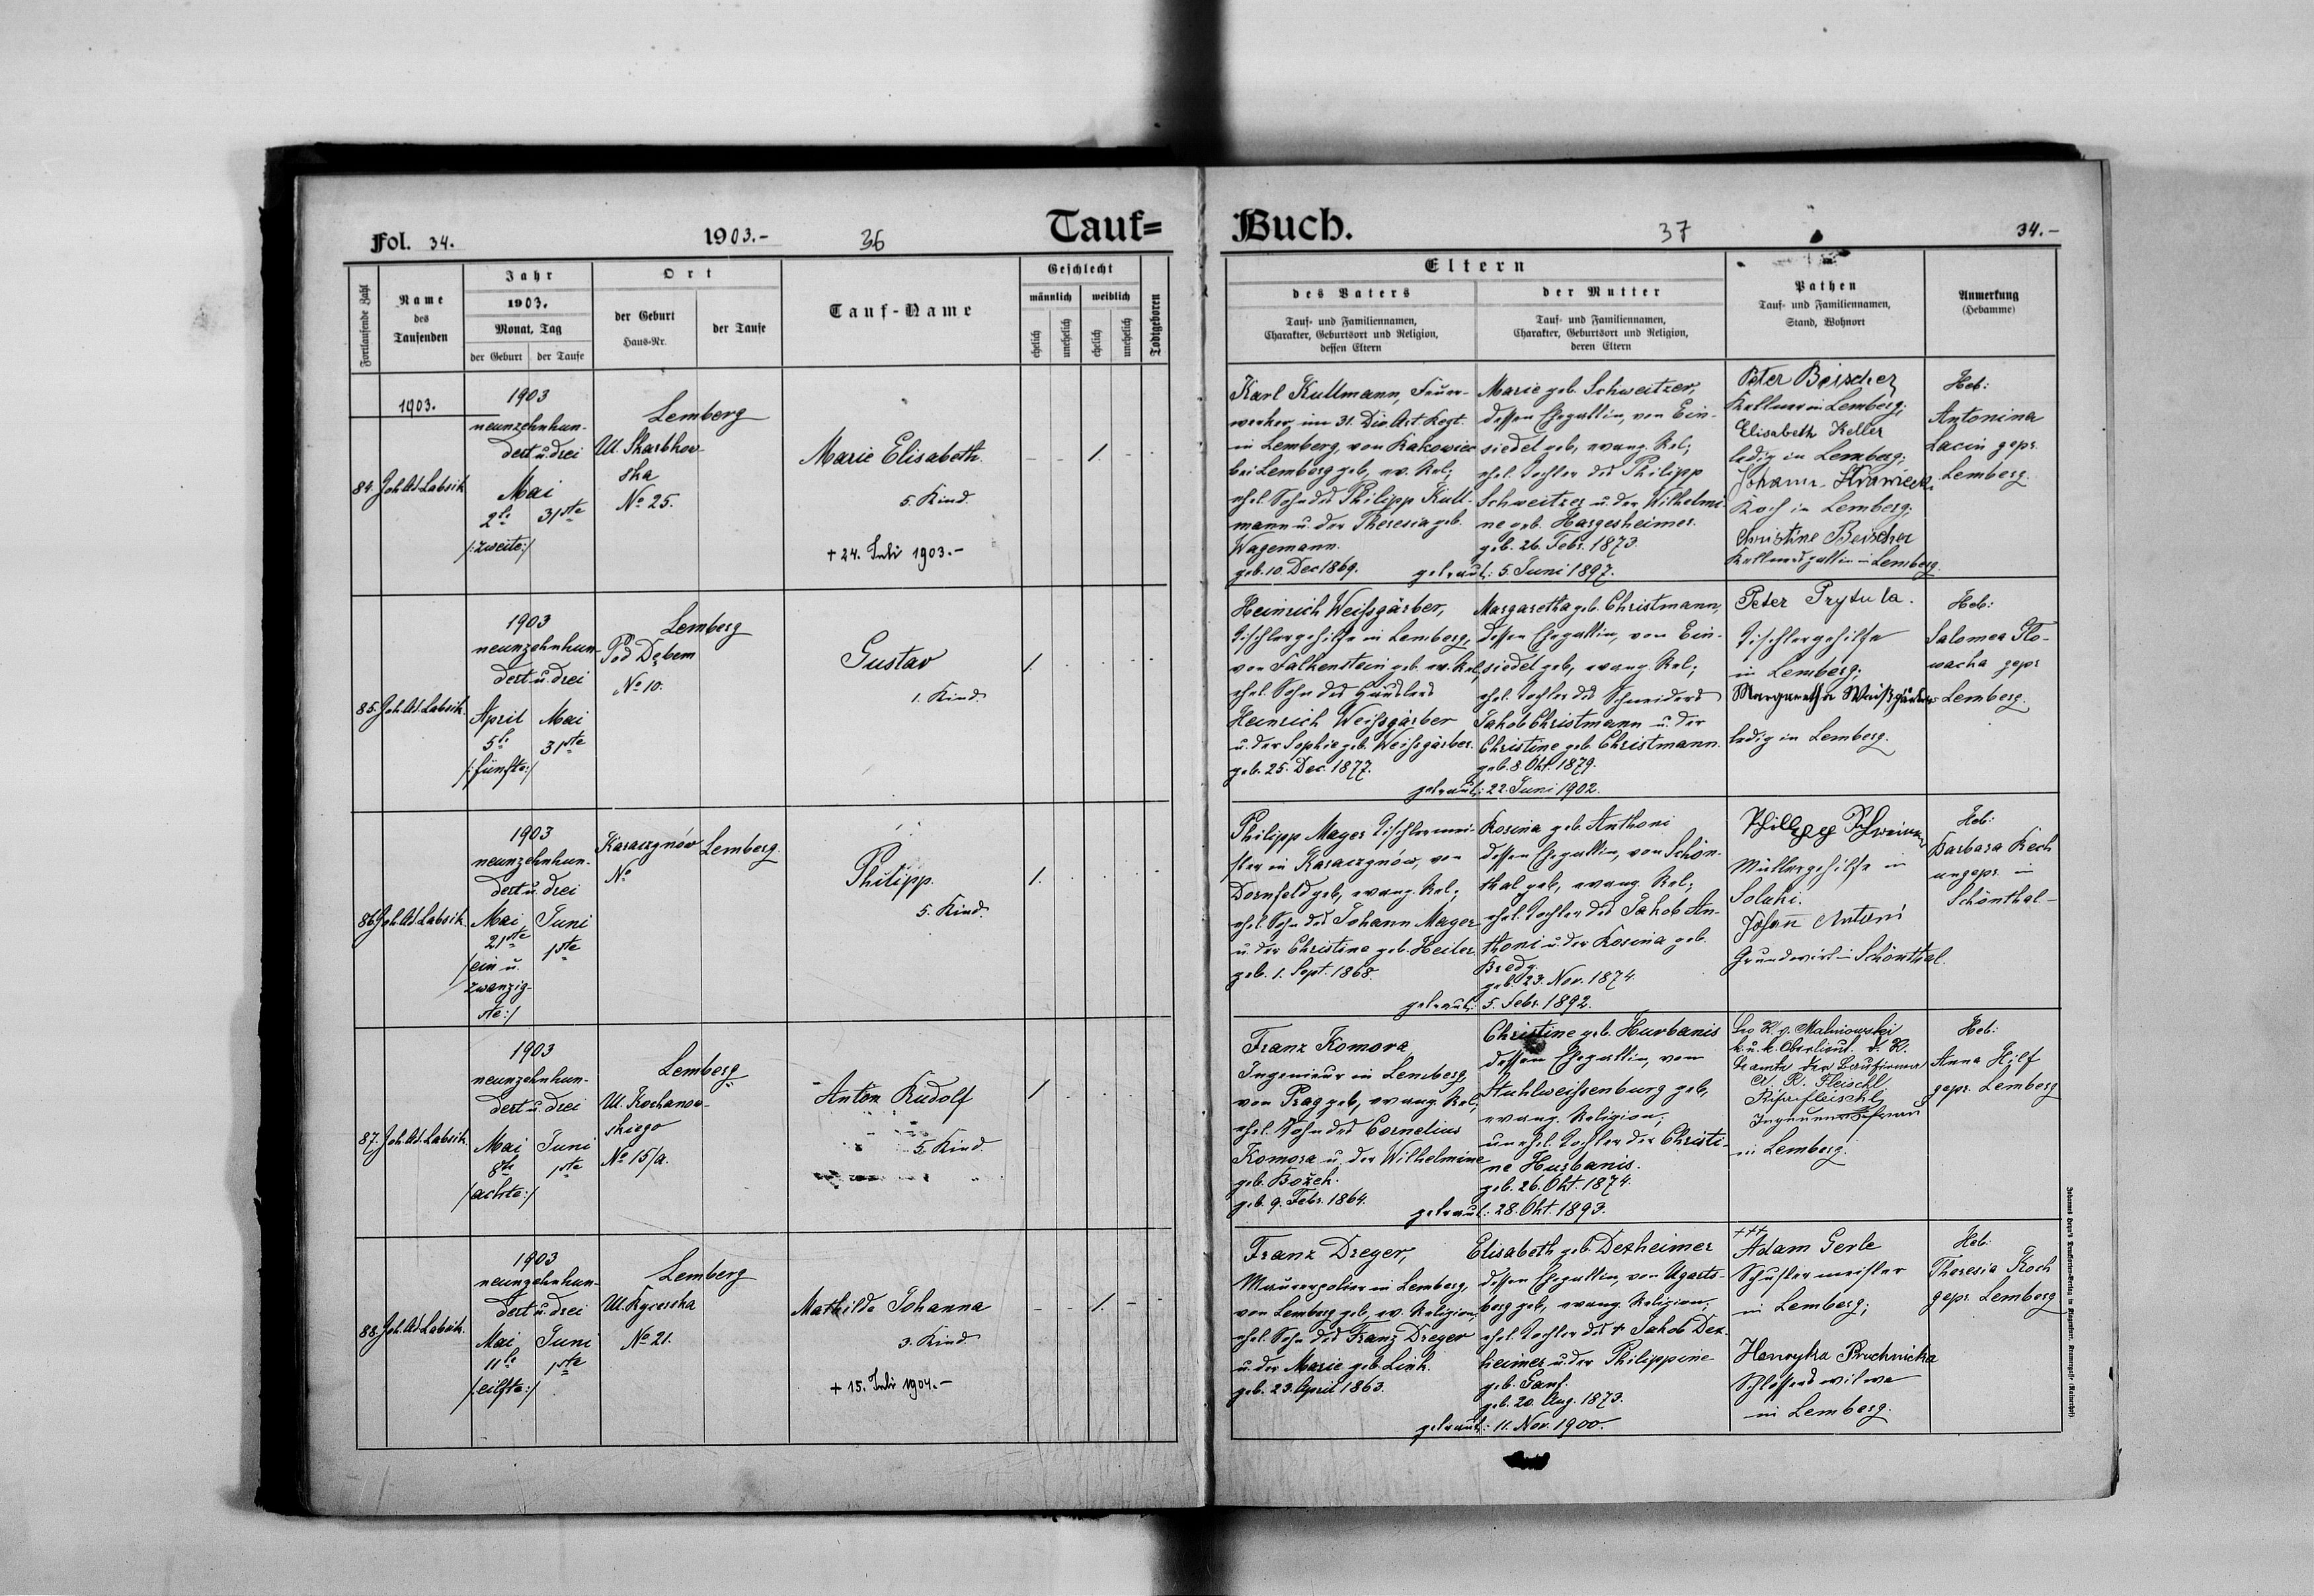 Fol. 34.
1903.-
36
Tauf=
Fortlaufende Zahl
Name
des
Taufenden
Jahr
1903.
Monat, Tag
der Geburt
der Taufe
Ort
der Geburt
Haus-Nr.
der Taufe
Tauf-Name
Geschlecht
männlich
weiblich
ehelich
unehelich
ehelich
unehelich
Todtgeboren
1903.
84.
Joh. Ad. Labsik
1903
neunzehnhun-
dert u. drei
Mai
2te
31ste
/:zweite:/
Lemberg
Ul. Skarbkow-
ska
No 25.
Marie Elisabeth.
5. Kind.
+ 24. Juli 1903.-
- - 1. - .
85.
Joh. Ad. Labsik.
1903
neunzehnhun-
dert u. drei
April
Mai
5te
31ste
/:fünfte:/
Lemberg
Pod Dębem
No 10.
Gustav
1. Kind.
1.
86.
Joh. Ad. Labsik.
1903
neunzehnhun-
dert u. drei
Mai
Juni
21ste
1ste
/ein u.
zwanzig-
ste:/
Karaczynów
No
Lemberg.
Philipp.
5. Kind.
1.
87.
Joh. Ad. Labsik.
1903
neunzehnhun-
dert u. drei
Mai
Juni
8te
1ste
/achte:/
Lemberg
Ul. Kochanow-
skiego
No 15/a.
Anton Rudolf
5. Kind.
1
88.
Joh. Ad. Labsik.
1903
neunzehnhun-
dert u. drei
Mai
Juni
11te
1ste
/:eilfte:/
Lemberg
Ul.
No 21.
Mathilde Johanna
3. Kind.
+ 15. Juli 1904.-
- - 1. - .
Buch.
37
34.-
Eltern
des Vaters
Tauf- und Familiennamen,
Charakter, Geburtsort und Religion,
dessen Eltern
der Mutter
Tauf- und Familiennamen,
Charakter, Geburtsort und Religion,
deren Eltern
Pathen
Tauf- und Familiennamen,
Stand, Wohnort
Anmerkung
(Hebamme)
Karl Kullmann, Feuer-
werker im 31. Div. Art. Regt.
in Lemberg, von
bei Lemberg geb, ev. Rel;
ehel. Sohn des Philipp Kull-
mann u. der Theresia geb.
Wagemann.
geb. 10. Dec 1869.
Marie geb. Schweitzer,
dessen Ehegattin, von Ein-
siedel geb, evang. Rel;
ehel. Tochter des Philipp
Schweitzer u. der Wilhelmi-
ne geb. Hargesheimer.
geb. 26. Febr. 1873.
getraut: 5. Juni 1897.
Peter Beischer
Kellner in Lemberg;
Elisabeth Keller
ledig in Lemberg;
Johann
Koch in Lemberg;
Christine Beischer
Kellnersgattin in Lemberg.
Heb:
Antonina
Lacin gepr.
Lemberg.
Heinrich Weißgärber,
Tischlergehilfe in Lemberg,
von Falkenstein geb. ev. Rel,
ehel. Sohn des Händlers
Heinrich Weißgärber
u. der Sophie geb. Weißgärber.
geb. 25. Dec. 1877.
Margaretha geb. Christmann,
dessen Ehegattin, von Ein-
siedel geb, evang. Rel;
ehel. Tochter des Schneiders
Jakob Christmann u. der
Christine geb. Christmann.
geb. 8. Okt. 1879.
getraut: 22. Juni 1902.
Peter Prytula.
Tischlergehilfe
in Lemberg;
Margaretha Weißgärber
ledig in Lemberg.
Heb:
Salomea Glo-
wacka gepr
Lemberg.
Philipp Mayer Tischlermei-
ster in Karaczynów, von
Dornfeld geb, evang. Rel;
ehel. Sohn des Johann Mayer
u. der Christine geb. Heiler.
geb. 1. Sept. 1868.
Rosina geb. Anthoni
dessen Ehegattin, von Schön-
thal geb, evang. Rel;
ehel. Tochter des Jakob An-
thoni u. der Rosina geb.
Bredy.
geb. 23. Nov. 1874.
getraut: 5. Febr. 1892.
Philipp
Müllergehilfe in
Soluki.
Johann Antoni
Grundwirt in Schönthal.
Heb:
Barbara Rech
ungepr. in
Schönthal-
Franz Komora,
Ingenieur in Lemberg
von Prag geb, evang. Rel;
ehel. Sohn des Cornelius
Komora u. der Wilhelmine
geb. Božek.
geb. 9. Febr. 1864.
Christine geb. Hurbanis
dessen Ehegattin, von
Stuhlweißenburg geb,
evang. Religion;
unehel. Tochter der Christi-
ne Hurbanis.
geb. 26. Okt. 1874.
getraut: 28. Okt. 1893.
Leo R. v. Malinowski
k. u. k. Oberlieut. d. R.
Beamte der Baufirma
A. R. Fleischl
in Lemberg.
Heb:
Anna Hilf
gepr. Lemberg
Franz Dreger,
Maurerpolier in Lemberg,
von Lemberg geb, ev. Religion,
ehel. Sohn des Franz Dreger
u. der Marie geb. Link.
geb. 23. April 1863.
Elisabeth geb. Dexheimer
dessen Ehegattin, von Ugarts-
berg geb, evang. Religion;
ehel. Tochter des + Jakob Dex-
heimer u. der Philippine
geb. Fanf.
geb. 20. Aug. 1873.
getraut: 11. Nov. 1900.
+++
Adam Gerle
Schustermeister
in Lemberg;
Henryka Pruchnicka
Schlosserswitwe
in Lemberg.
Heb:
Theresia Koch
gepr. Lemberg